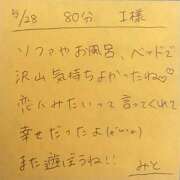 5/28 80分 I様
ソファやお風呂、ベッドで
沢山気持ちよかったね♡
恋人みたいって言ってくれて
幸せだったよ(**)
また遊ぼうね!! みと